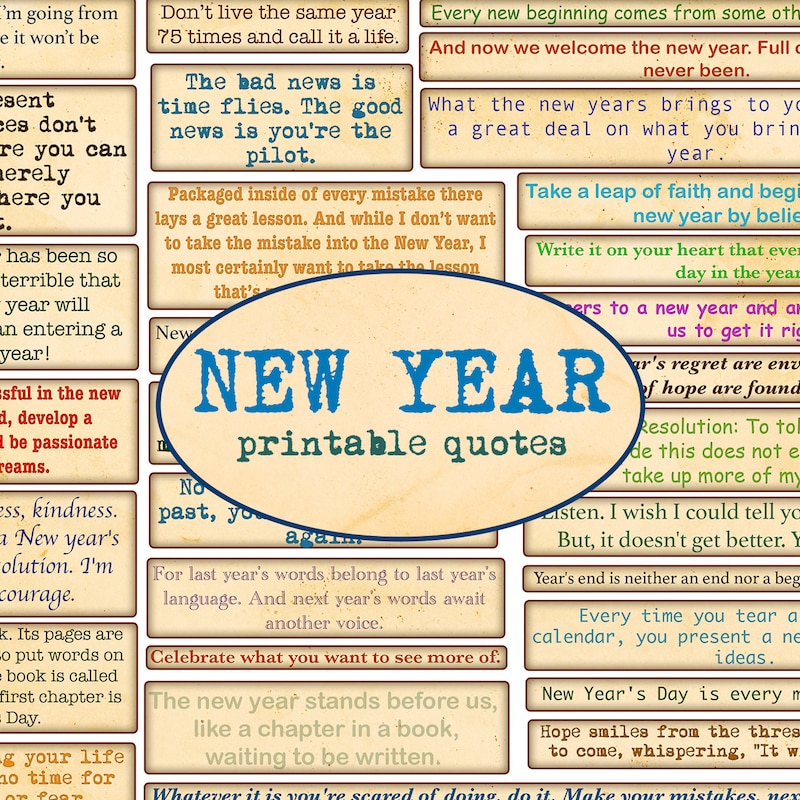 I'm going from
e it won't be
.
esent
ces don't
re you can
erely
here you
t.
has been so
terrible that
year will
an entering a
year!
ssful in the new
d, develop a
d be passionate
reams.
ess, kindness.
a New year's
olution. I'm
courage.
k. Its pages are
to put words on
e book is called
first chapter is
s Day.
g your life
no time for
or fear
Don't live the same year
75 times and call it a life.
The bad news is
time flies. The good
news is you're the
pilot.
Packaged inside of every mistake there
lays a great lesson. And while I don't want
to take the mistake into the New Year, I
most certainly want to take the lesson
that's
New
NEW YEAR
printable quotes
No
past, you
again.
For last year's words belong to last year's
language. And next year's words await
another voice.
Celebrate what you want to see more of.
The new year stands before us,
like a chapter in a book,
waiting to be written.
Whatever it is you're scared of doing, do it. Make your mistakes, nex
Every new beginning comes from some oth
And now we welcome the new year. Full o
never been.
What the new years brings to yo
a great deal on what you brin
year.
Take a leap of faith and begi
new year by belie
Write it on your heart that eve
day in the year
ers to a new year and an
us to get it rig
ar's regret are env
of hope are found
Resolution: To tol
de this does not e
take up more of my
Listen. I wish I could tell yo
But, it doesn't get better. Y
Year's end is neither an end nor a beg
Every time you tear a
calendar, you present a ne
ideas.
New Year's Day is every m
Hope smiles from the thres
to come, whispering, "It w